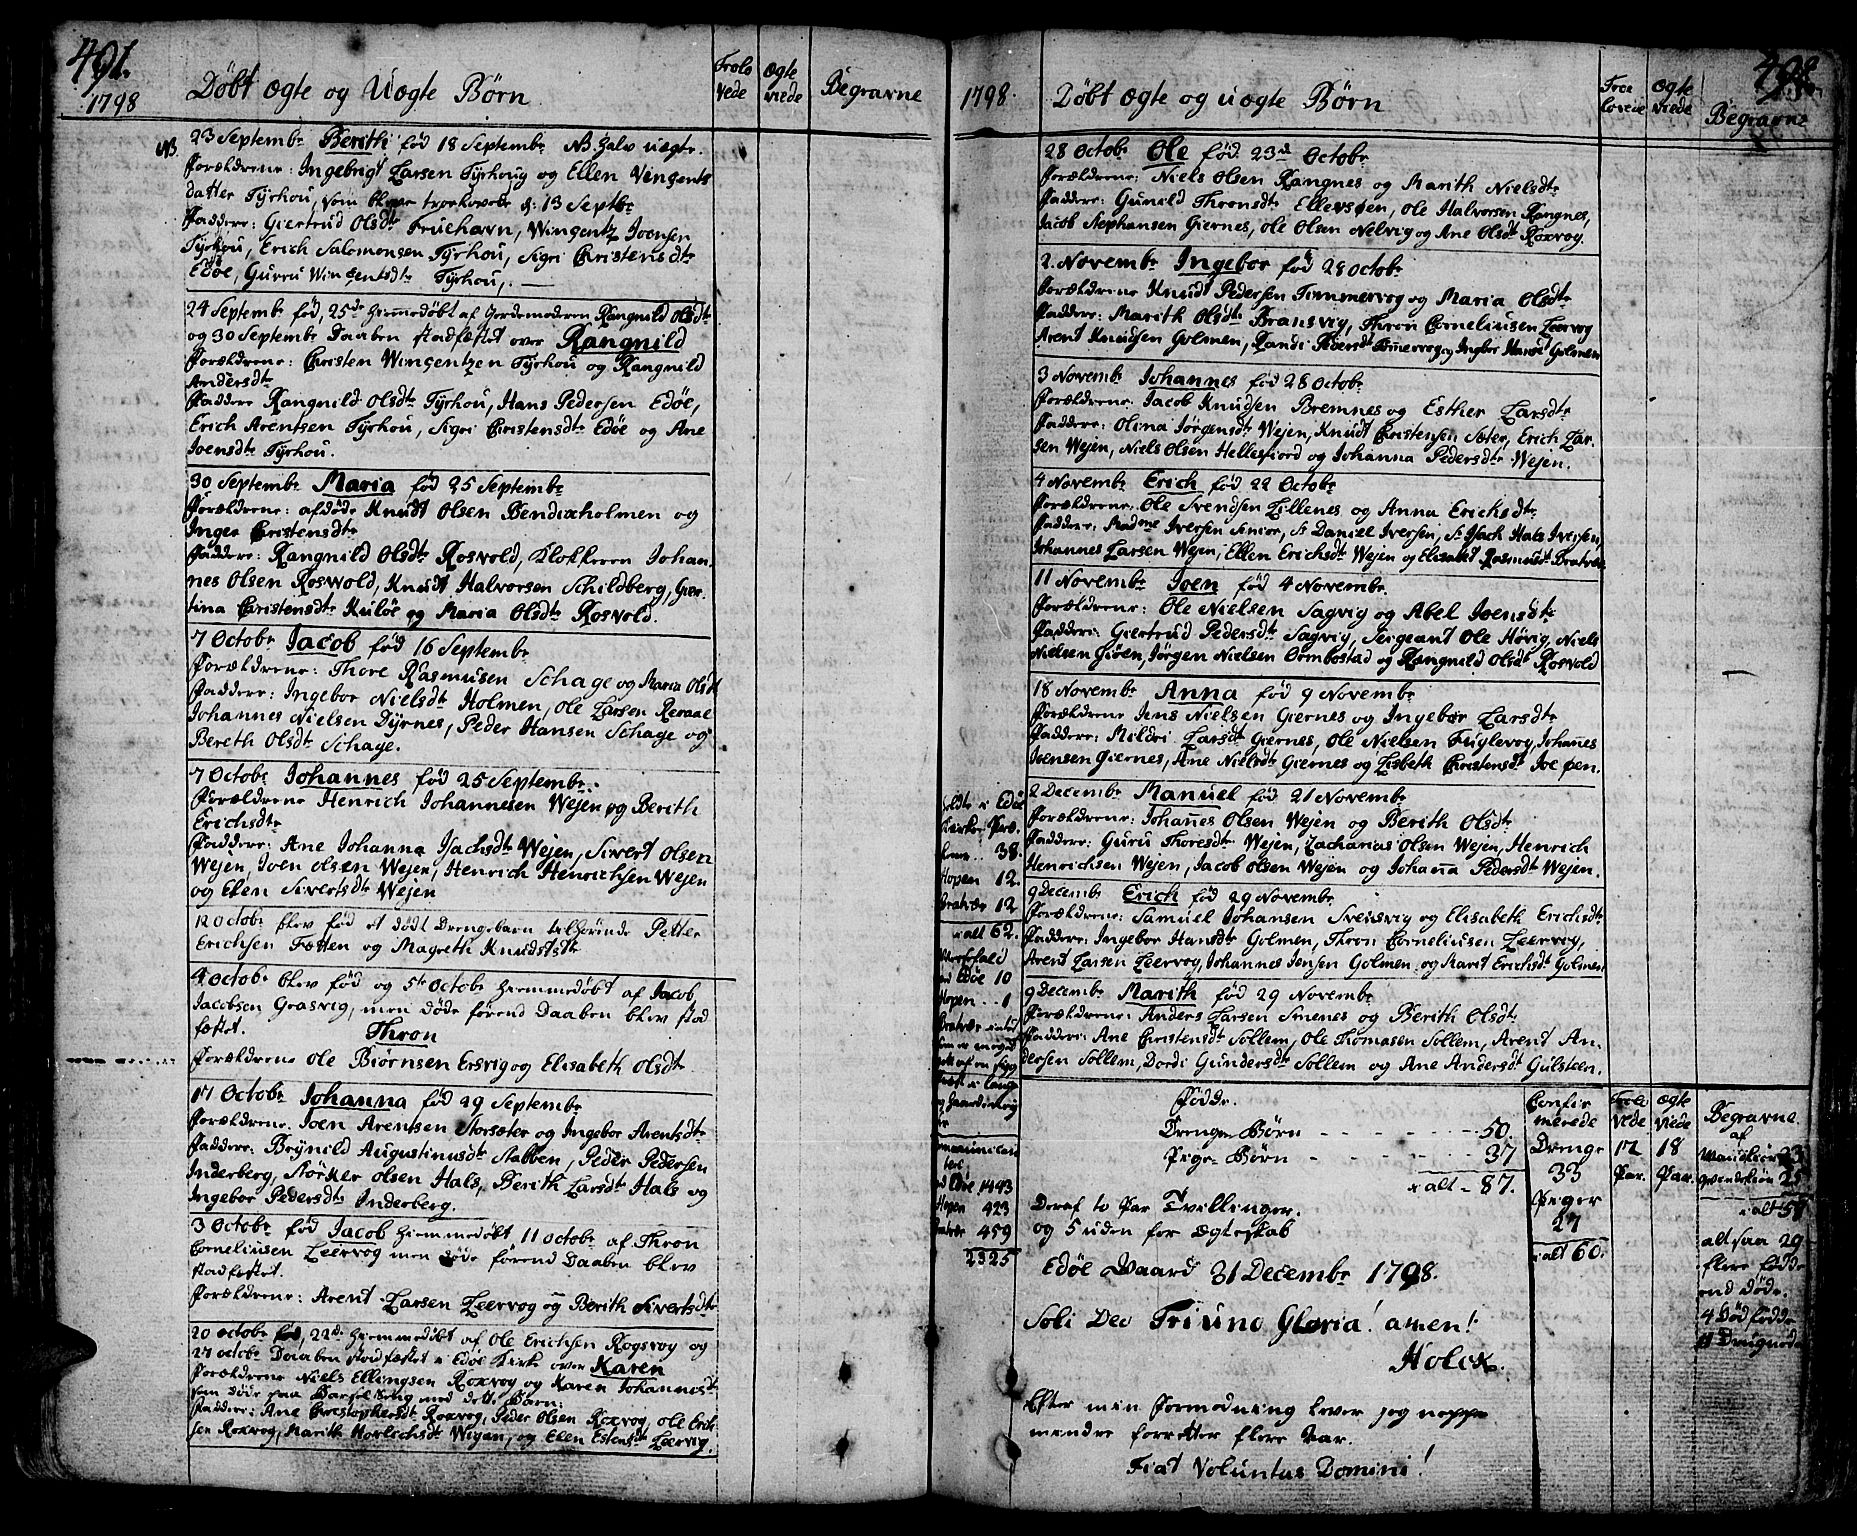 491.
1798
Døbt ægte og Uægte Børn.
Trolo
vede
Ægte
viede
Begravne
NB.
23 Septembr Berith fød 18 Septembr NB. halv uægte.
Forældrene: Ingebrigt Larsen Tyrhoug og Ellen Vingents
datter Tyrhou, som bleve troelovede d: 13 Septbr
Faddere: Giertrud Olsdtr Fruehavn, Wingentz Joensen
Tyrhou, Erich Salomonsen Tyrhou, Sigri Christensdtr
Edøe, Gurru Wingentsdtr Tyrhou,
24 Septembr fød, 25de hiemmedøbt af Jordemoderen Rangnild Olsdtr
og 30 Septembr Daaben stadfæstet over Rangnild
Forældrene: Christen Wingentzen Tyrhou og Rangnild
Andersdtr
Faddere Rangnild Olsdtr Tyrhou, Hans Pedersen Edøe,
Erich Arentsen Tyrhou, Sigri Christensdtr Edøe og Ane
Joensdtr Tyrhou.
30 Septembr Maria fød 25 Septembr
Forældrene: afdøde Knudt Olsen Bendixholmen og
Inger Christensdtr
Faddere: Rangnild Olsdtr Rosvold, Klokkeren Johan-
nes Olsen Rosvold, Knudt Halvorsen Schildberg, Gier-
tina Christensdtr Kuløe og Maria Olsdtr Rosvold.
7 Octobr Jacob fød 16 Septembr
Forældrene: Thore Rasmusen Schage og Maria Olsdtr
Faddere: Ingebor Nielsdtr Holmen, Ole Larsen Reraae
Johannes Nielsen Dyrnes, Peder Hansen Schage og
Bereth Olsdtr Schage.
7 Octobr Johannes fød 25 Septembr
Forældrene Henrich Johannesen Wejen og Berith
Erichsdtr
Faddere: Ane Johanna Jachsdtr Wejen, Sivert Olsen
Wejen, Joen Olsen Wejen, Henrich Henrichsen Wejen
og Elen Sivertsdtr Wejen
12 Octobr blev fød et dødt Drengebarn tilhørende Petter
Erichsen Fætten og Magreth Knudstdtr
4 Octobr blev fød og 5te Octobr hiemmedøbt af Jacob
Jacobsen Grasvig, men døde førend Daaben blev stad
fæstet.
Thron
Forældrene Ole Biørnsen Ersvig og Elisabeth Olsdtr
17 Octobr Johanna fød 29 Septembr
Forældrene. Joen Arentsen Storsæter og Ingebor Arentsdtr
Faddere: Brynild Augustinusdtr Stabben, Peder Pedersen
Inderberg, Størker Olsen Hals, Berith Larsdtr Hals og
Ingebor Pedersdtr Inderberg.
3 Octobr fød Jacob hiemmedøbt 11 Octobr af Thron
Corneliusen Leervog men døde førend Daaben blev
stadfæstet.
Forældrene: Arent Larsen Leervog og Berith Sivertsdtr
20 Octobr fød, 22de hiemmedøbt af Ole Erichsen Rogsvog og
27 Octobr Daaben stadfæstet i Edøe Kirke over Karen
Forældrene Niels Ellingsen Roxvog og Karen Johannesdtr
som døde paa Barsel Seng med dette Barn.
Faddere: Ane Christophersdtr Roxvog, Peder Olsen Roxvog, Ole Erich-
sen Roxvog, Marith Hovlechsdtr Wejen, og Elen Estensdtr Leervig.
498
1798.
Døbt ægte og uægte Børn
Troe
lovede
Ægte
viede
Begravne
28 Octobr Ole fød. 23de Octobr
Forældrene: Niels Olsen Rangnes og Marith Nielsdtr
Faddere: Gunild Thronsdtr Ellevsøen, Ole Halvorsen Rangnes,
Jacob Stephansen Giernes, Ole Olsen Nelvig og Ane Olsdtr Roxvog.
2. Novembr Ingebor fød 28 Octobr
Forældrene Knudt Pedersen Tømmervog og Maria Olsdtr
Faddere: Marith Olsdtr Bransvig, Thron Corneliusen Leervog
Arent Knudsen Golmen, Randi Iversdtr Tømervog og Ingbor Hansdtr Golmen
3 Novembr Johannes fød 28 Octobr
Forældrene: Jacob Knudsen Bremnes og Esther Larsdtr
Faddere: Olina Jørgensdtr Wejen, Knudt Christensen Sæter, Erich Lar-
sen Wejen, Niels Olsen Hellesfiord og Johanna Pedersdtr Wejen.
4 Novembr Erich fød 22 Octobr
Forældrene: Ole Svendsen Lillenes og Anna Erichsdtr
Faddere: Madme Iversen Senior, Sr Daniel Iversen, Sr Isach Hals Iversen,
Johannes Larsen Wejen, Ellen Erichsdtr Wejen og Elisabet Rasmusdtr Bratvær
11 Novembr Joen fød 4 Novembr.
Forældrene: Ole Nielsen Sagvig og Abel Joensdtr
Faddere: Giertrud Pedersdtr Sagvig, Sergeant Ole Høvig, Niels
Nielsen Giøen, Jørgen Nielsen Ormbostad og Rangnild Olsdtr Rosvold
18 Novembr Anna fød 9 Novembr
Forældrene Jens Nielsen Giernes og Ingebor Larsdtr
Faddere: Mildri Larsdtr Giernes, Ole Nielsen Fuglevog, Johanes
Joensen Giernes, Ane Nielsdtr Giernes og Lisbeth Christensdtr Joeøen.
2 Decembr Manuel fød 21 Novembr
Forældrene: Johanes Olsen Wejen og Berith Olsdtr
Faddere: Guru Thoresdtr Wejen, Zacharias Olsen Wejen, Henrich
Henrichsen Wejen, Jacob Olsen Wejen og Johana Pedersdtr Wejen.
9 Decembr Erich fød 29 Novembr
Forældrene: Samuel Johansen Svensvig og Elisabeth Erichsdtr
Faddere: Ingebor Hansdtr Golmen, Thron Corneliusen Leervog,
Arent Larsen Leervog, Johannes Jensen Golmen og Marit Erichsdtr Golmen
9 Decembr Marith fød 29 Novembr
Forældrene: Anders Larsen Smenes og Berith Olsdtr
Faddere: Ane Christensdtr Sollem, Ole Thomasen Sollem, Arent An-
dersen Sollem, Dordi Gundersdtr Sollem og Ane Andersdtr Gulsteen.
holdte i Edøe
Kirke Præ.
kener .. 38.
Hopen 12.
Bratvær 12
i alt 62.
Hopen .. 1
Edøe 1443
Hopen 423
Bratvær 459
2325
Fødde.
Drenge Børn - - - - 50.
Pige-Børn - - - - 37
i alt - 87.
Deraf to Par Tvillinger.
og 5 uden for Ægteskab
Confir
merede
Drenge
33
Piger
27
i alt 60.
Trolo
vede
17
Par.
Ægte
viede
18
Par.
Begravne.
af
Mandkiøn 33
Qvindekiøn 25
i alt 58
altsaa 29
flere fødde
end døde.
4 Dødfødde
Edøe Gaard 31 Decembr 1798.
Soli Deo Triuno Gloria! amen!
Holck.
Efter min Formodning lever jeg neppe
mendre forretter flere Aar.
Fiat Voluntas Domini!